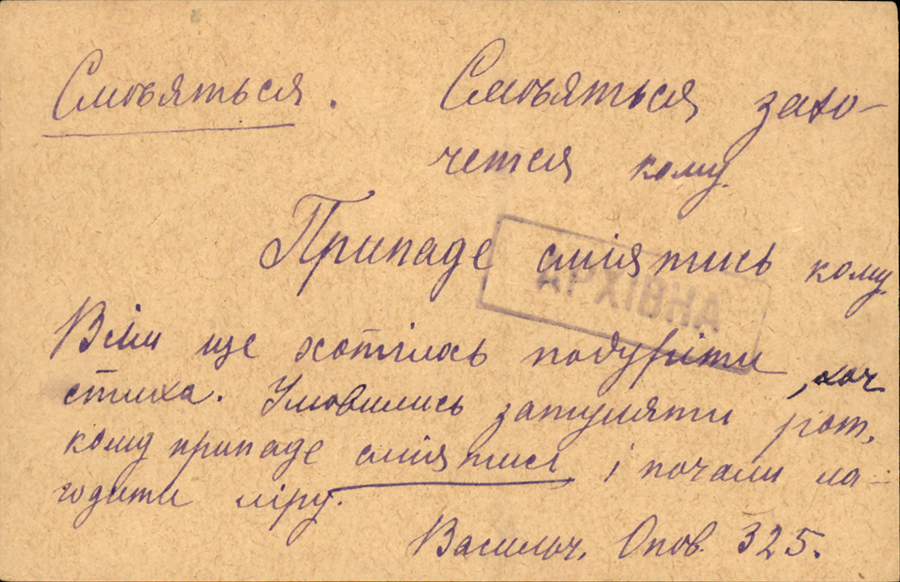 Сміяться. Сміяться захо-
четця кому.
Припаде сміятись кому.
АРХІВНА
Всім ще хотілось подуріти, хоч
стиха. Умовились затуляти рот,
кому припаде сміятись і почали ла-
годити ліру.
Васильч. Опов. 325.